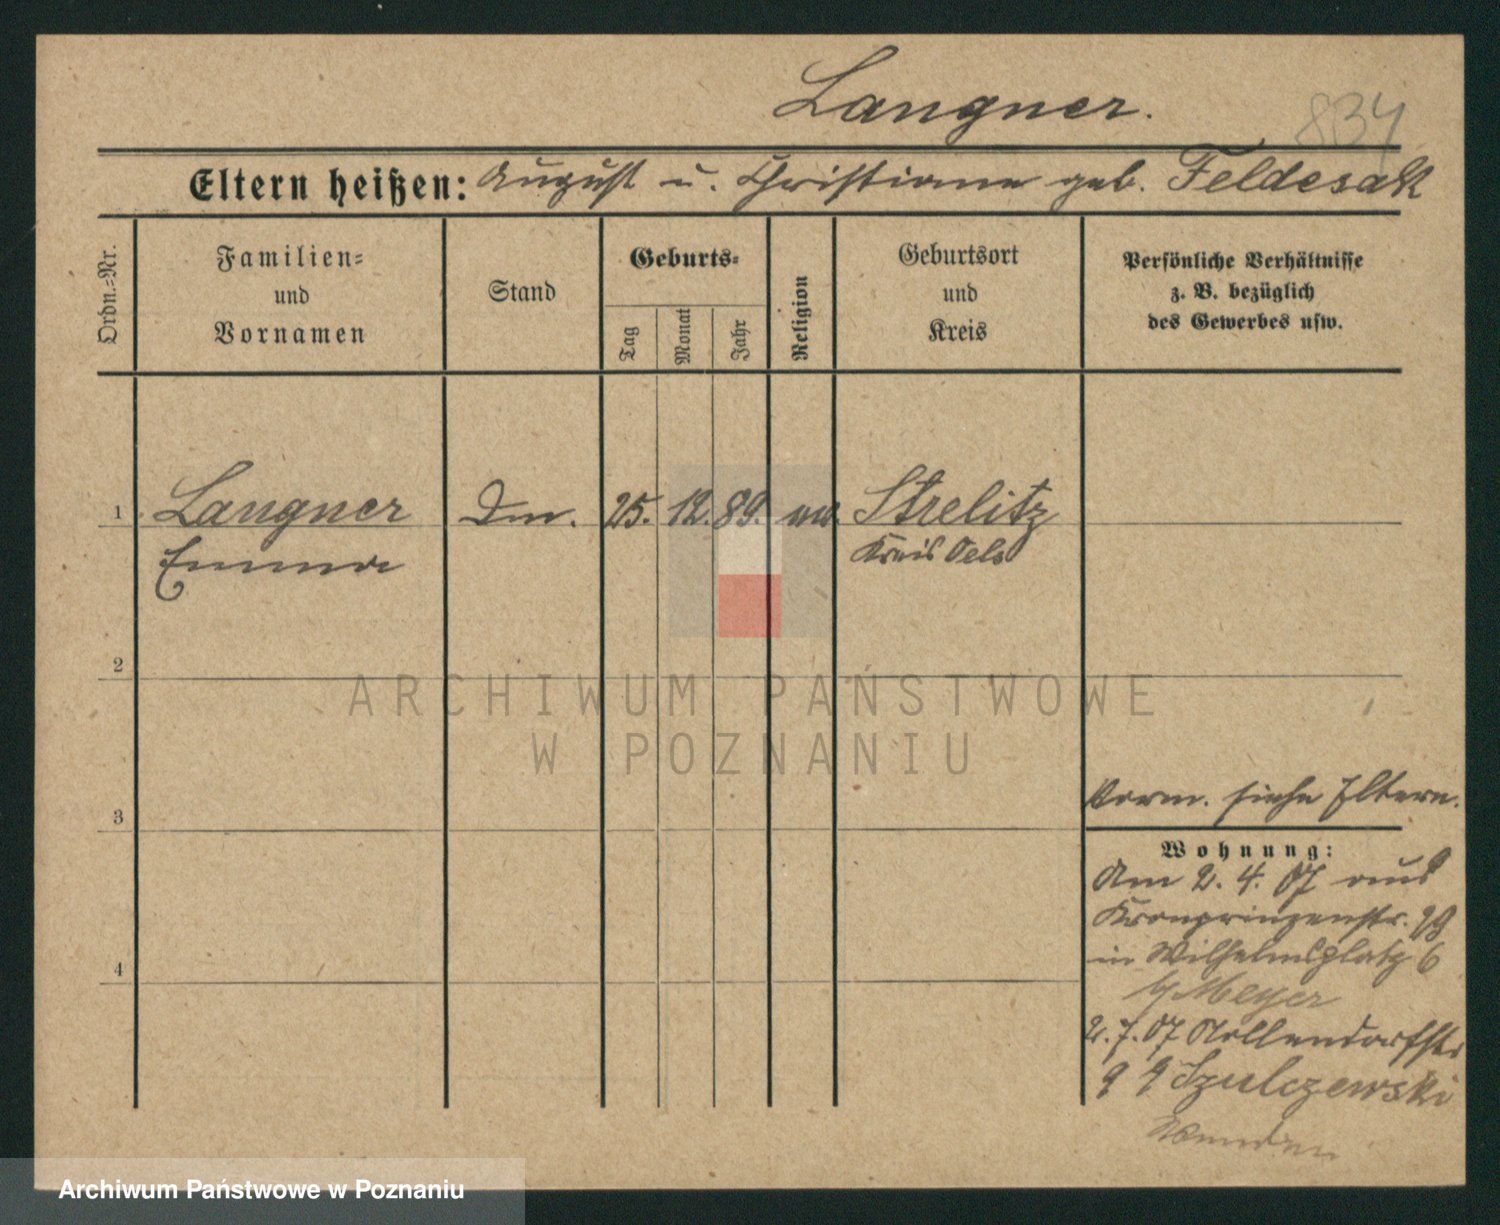 Langner.
834
Eltern heißen: August u. Christiane geb. Feldesak
Ordn.=Nr.
Familien=
und
Vornamen
Stand
Geburts=
Tag
Monat
Jahr
Religion
Geburtsort
und
Kreis
Persönliche Verhältnisse
z. B. bezüglich
des Gewerbes usw.
1
Langner
Emma
25. 12. 89.
Strelitz
Kreis Oels
2
3
4
Vorm. siehe Eltern.
Wohnung:
Am 2. 4. 07 aus
Kronprinzenstr. 99
in Wilhelmsplatz 6
b/ Meyer
2. 7. 07 Nollendorfstr
Szulczewski
ARCHIWUM PAŃSTWOWE
W POZNANIU
Archiwum Państwowe w Poznaniu